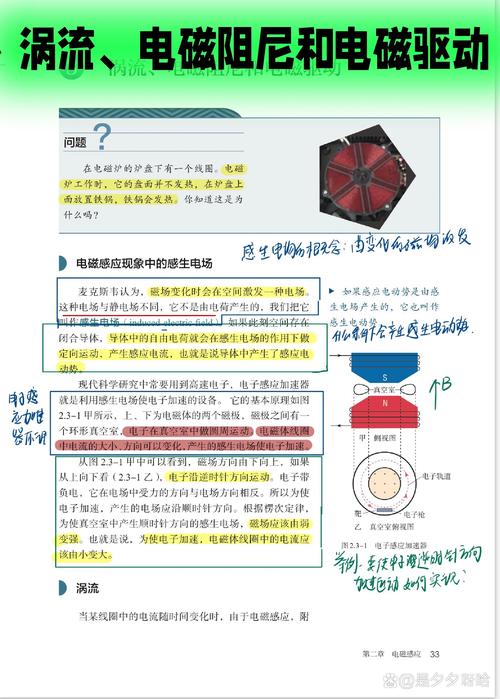 涡流、电磁阻尼和电磁驱动
涡流、电磁阻尼和电磁驱动
问题？
在电磁炉的炉盘下有一个线圈。电磁
炉工作时，它的盘面并不发热，在炉盘上
面放置铁锅，铁锅会发热。你知道这是为
什么吗？
电磁感应现象中的感生电场
麦克斯韦认为，磁场变化时会在空间激发一种电场。
这种电场与静电场不同，它不是由电荷产生的，我们把它
叫作感生电场（induced electric field）。如果此刻空间存在
闭合导体，导体中的自由电荷就会在感生电场的作用下做
定向运动，产生感应电流，也就是说导体中产生了感应电
动势。
▶ 如果感应电动势是由感
生电场产生的，它也叫作
感生电动势。
什么条件下会产生感生电动势
现代科学研究中常要用到高速电子，电子感应加速器
就是利用感生电场使电子加速的设备。它的基本原理如图
2.3-1甲所示，上、下为电磁体的两个磁极，磁极之间有一
个环形真空室，电子在真空室中做圆周运动。电磁体线圈
中电流的大小、方向可以变化，产生的感生电场使电子加速。
从图2.3-1甲中可以看到，磁场方向由下向上，如果
从上向下看（2.3-1乙），电子沿逆时针方向运动。电子带
负电，它在电场中受力的方向与电场方向相反。所以为使
电子加速，产生的电场应沿顺时针方向。根据楞次定律，
为使真空室中产生顺时针方向的感生电场，磁场应该由弱
变强。也就是说，为使电子加速，电磁体线圈中的电流应
该由小变大。
S
真空室
N
↑B
甲 侧视图
电子轨道
靶
电子枪
乙 真空室俯视图
图2.3-1 电子感应加速器
涡流
当某线圈中的电流随时间变化时，由于电磁感应，附
第二章 电磁感应 33
@是夕夕呀哈